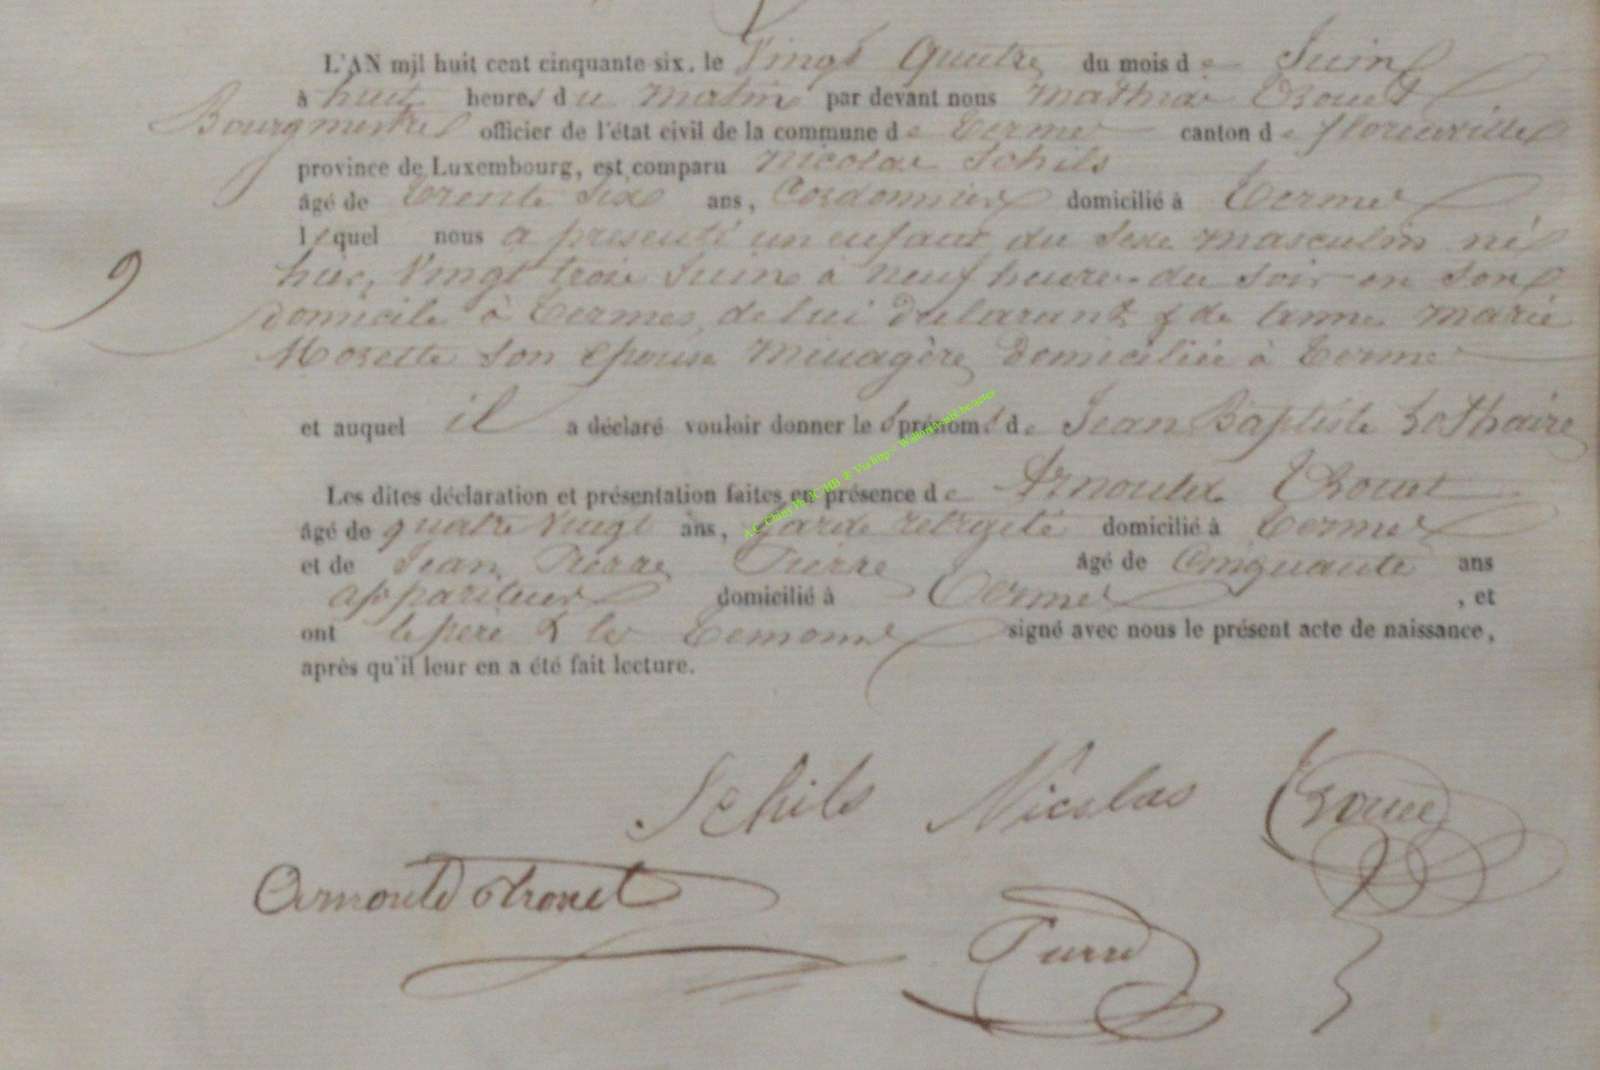 L'AN mil huit cent cinquante six, le Vingt Quatre du mois de Juin
à huit heures du matin par devant nous Mathias Trouet
Bourgmestre officier de l'état civil de la commune de Termes canton de florenville
province de Luxembourg, est comparu Nicolas Schils
âgé de Trente Six ans, Cordonnier domicilié à Termes
lequel nous a présenté un enfant du Sexe masculin né
hier, Vingt trois Juin à neuf heures du Soir en Son
Domicile à Termes, de lui Déclarant & de Anne Marie
Mosette Son épouse Ménagère Domiciliée à Termes
9
et auquel il a déclaré vouloir donner le s prénom s de Jean Baptiste Lothaire
Les dites déclaration et présentation faites en présence de Arnould Trouet
âgé de quatre Vingt ans, garde domicilié à Termes
et de Jean Pierre Pierre âgé de Cinquante ans
appariteur domicilié à Termes , et
ont le père & les Témoins signé avec nous le présent acte de naissance,
après qu'il leur en a été fait lecture.
Schils Nicolas Trouet
Arnould Trouet
Pierre